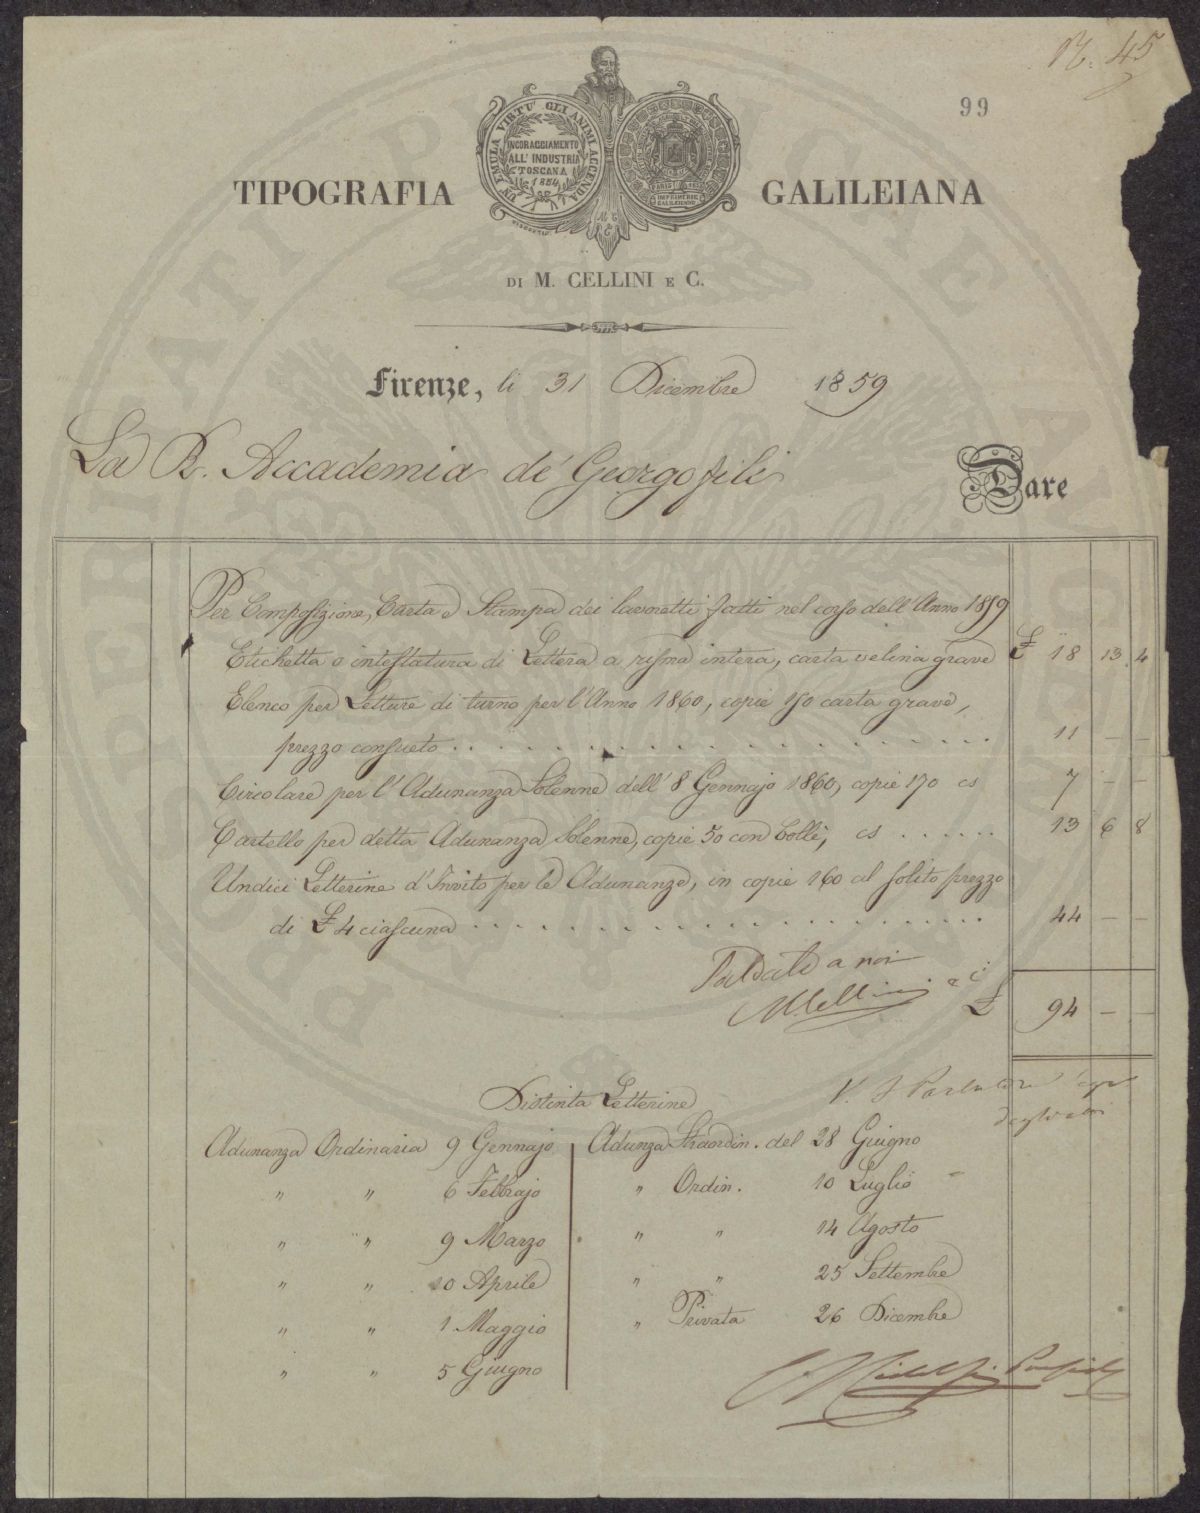 N. 45
99
UN EMULA VIRTU' GLI ANIMI ACCENDA
INCORAGGIAMENTO
ALL' INDUSTRIA
TOSCANA
1854
IMPRIMERIE
GALILEIENNE
TIPOGRAFIA GALILEIANA
DI M. CELLINI E C.
Firenze, li 31 Dicembre 1859
La R. Accademia de' Georgofili Dare
Per Composizione, Carta e Stampa dei lavoretti fatti nel corso dell'Anno 1859
Etichetta o intestatura di Lettera a risma intera, carta velina grave £ 18 13 4
Elenco per Letture di turno per l'Anno 1860, copie 150 carta grave,
prezzo consueto . . . . . . . . . . . . . . . . . . . . 11 – –
Circolare per l'Adunanza Solenne dell' 8 Gennajo 1860, copie 170 cs 7 – –
Cartello per detta Adunanza Solenne, copie 50 con bolli, cs . . . . . . 13 6 8
Undici Letterine d'Invito per le Adunanze, in copie 160 al solito prezzo
di £ 4 ciascuna . . . . . . . . . . . . . . . . . . . . 44 – –
Saldato a noi
MCellini e C.
£ 94 – –
V.
Distinta Letterine
Adunanza Ordinaria 9 Gennajo
" " 6 Febbrajo
" " 9 Marzo
" " 10 Aprile
" " 1 Maggio
" " 5 Giugno
Adunza Straordin. del 28 Giugno
" Ordin. 10 Luglio
" " 14 Agosto
" " 25 Settembre
" Privata 26 Dicembre